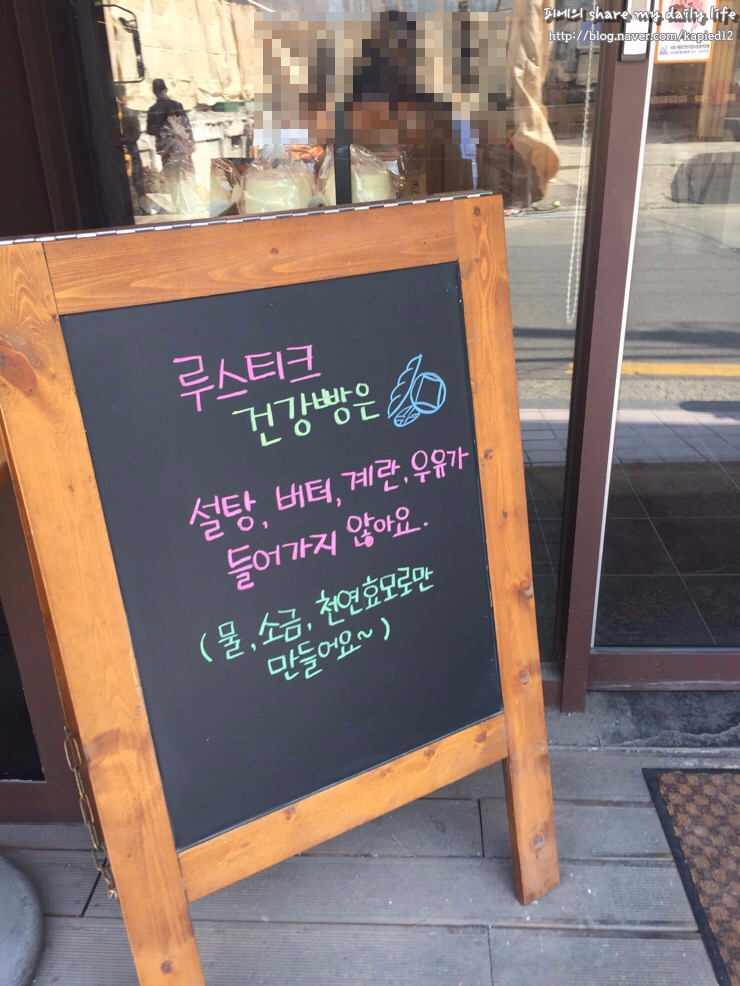 피에의 share my daily life
http://blog.naver.com/kapied12
루스티크
건강빵은
설탕, 버터, 계란, 우유가
들어가지 않아요.
(물, 소금, 천연효모로만
만들어요~)